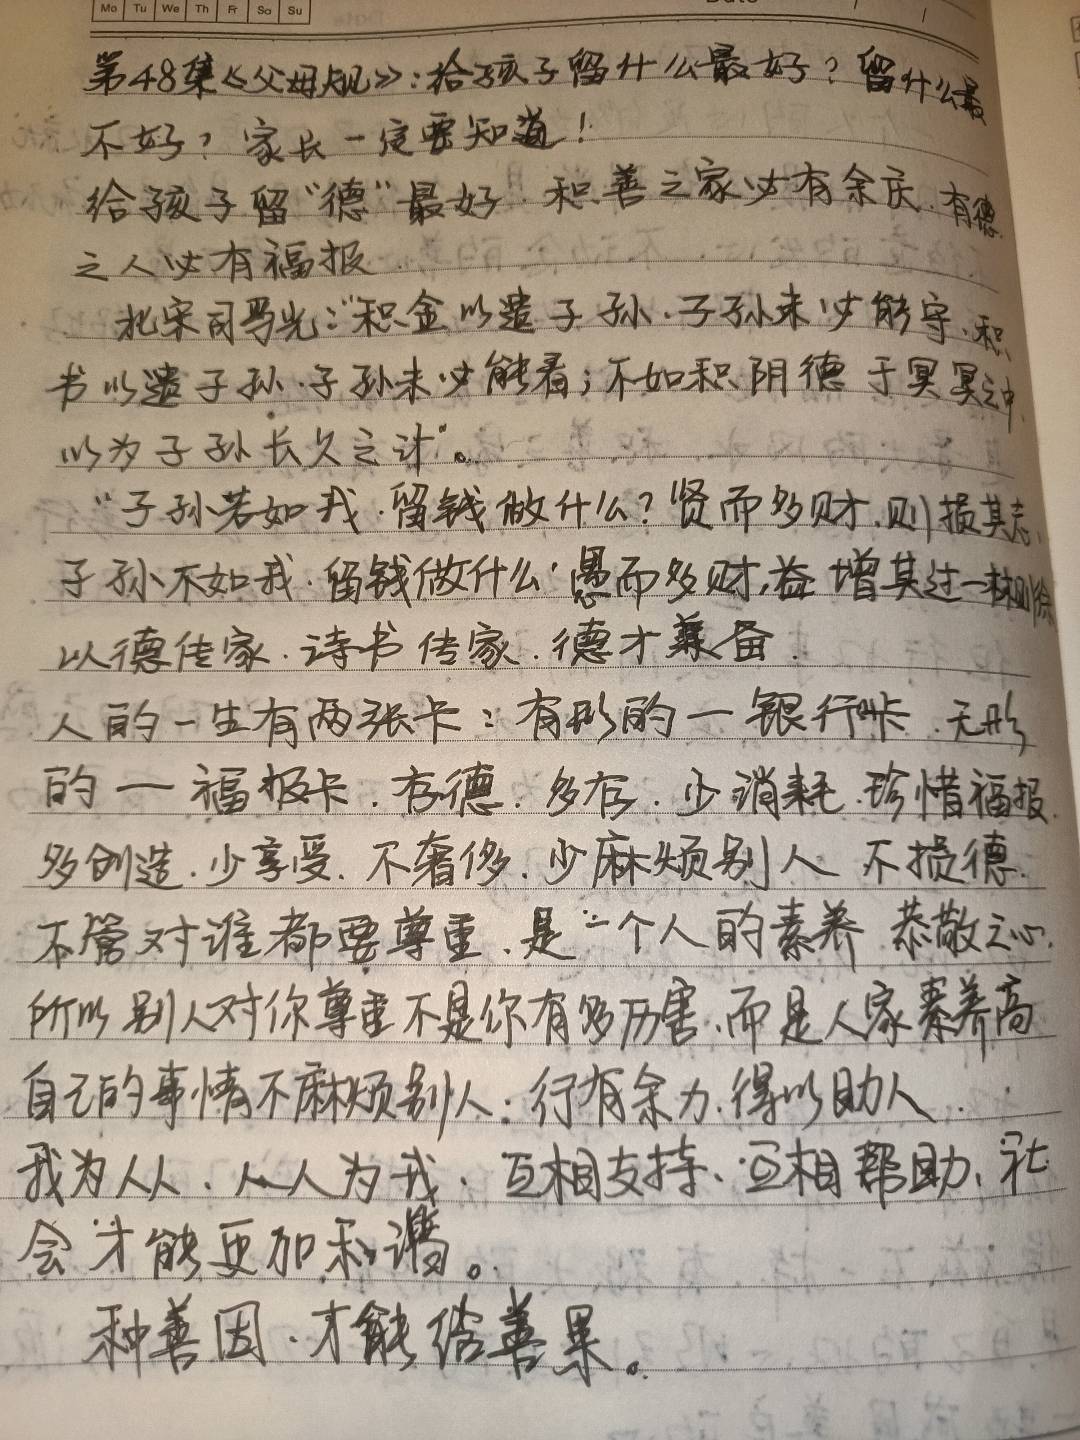 Mo Tu We Th Fr Sa Su
Date
第48集《父母规》：给孩子留什么最好？留什么最
不好？家长一定要知道！
给孩子留“德”最好．积善之家必有余庆．有德
之人必有福报
北宋司马光：“积金以遗子孙．子孙未必能守．积
书以遗子孙．子孙未必能看；不如积阴德于冥冥之中
以为子孙长久之计”。
“子孙若如我．留钱做什么？贤而多财．则损其志．
子孙不如我．留钱做什么．愚而多财，益增其过－林则徐
以德传家．诗书传家．德才兼备．
人的一生有两张卡：有形的一银行卡．无形
的一福报卡．存德．多存．少消耗．珍惜福报．
多创造．少享受．不奢侈．少麻烦别人 不损德．
不管对谁都要尊重．是一个人的素养 恭敬之心．
所以别人对你尊重不是你有多厉害．而是人家素养高
自己的事情不麻烦别人：行有余力．得以助人．
我为人人．人人为我．互相支持．互相帮助．社
会才能更加和谐。
种善因．才能结善果。